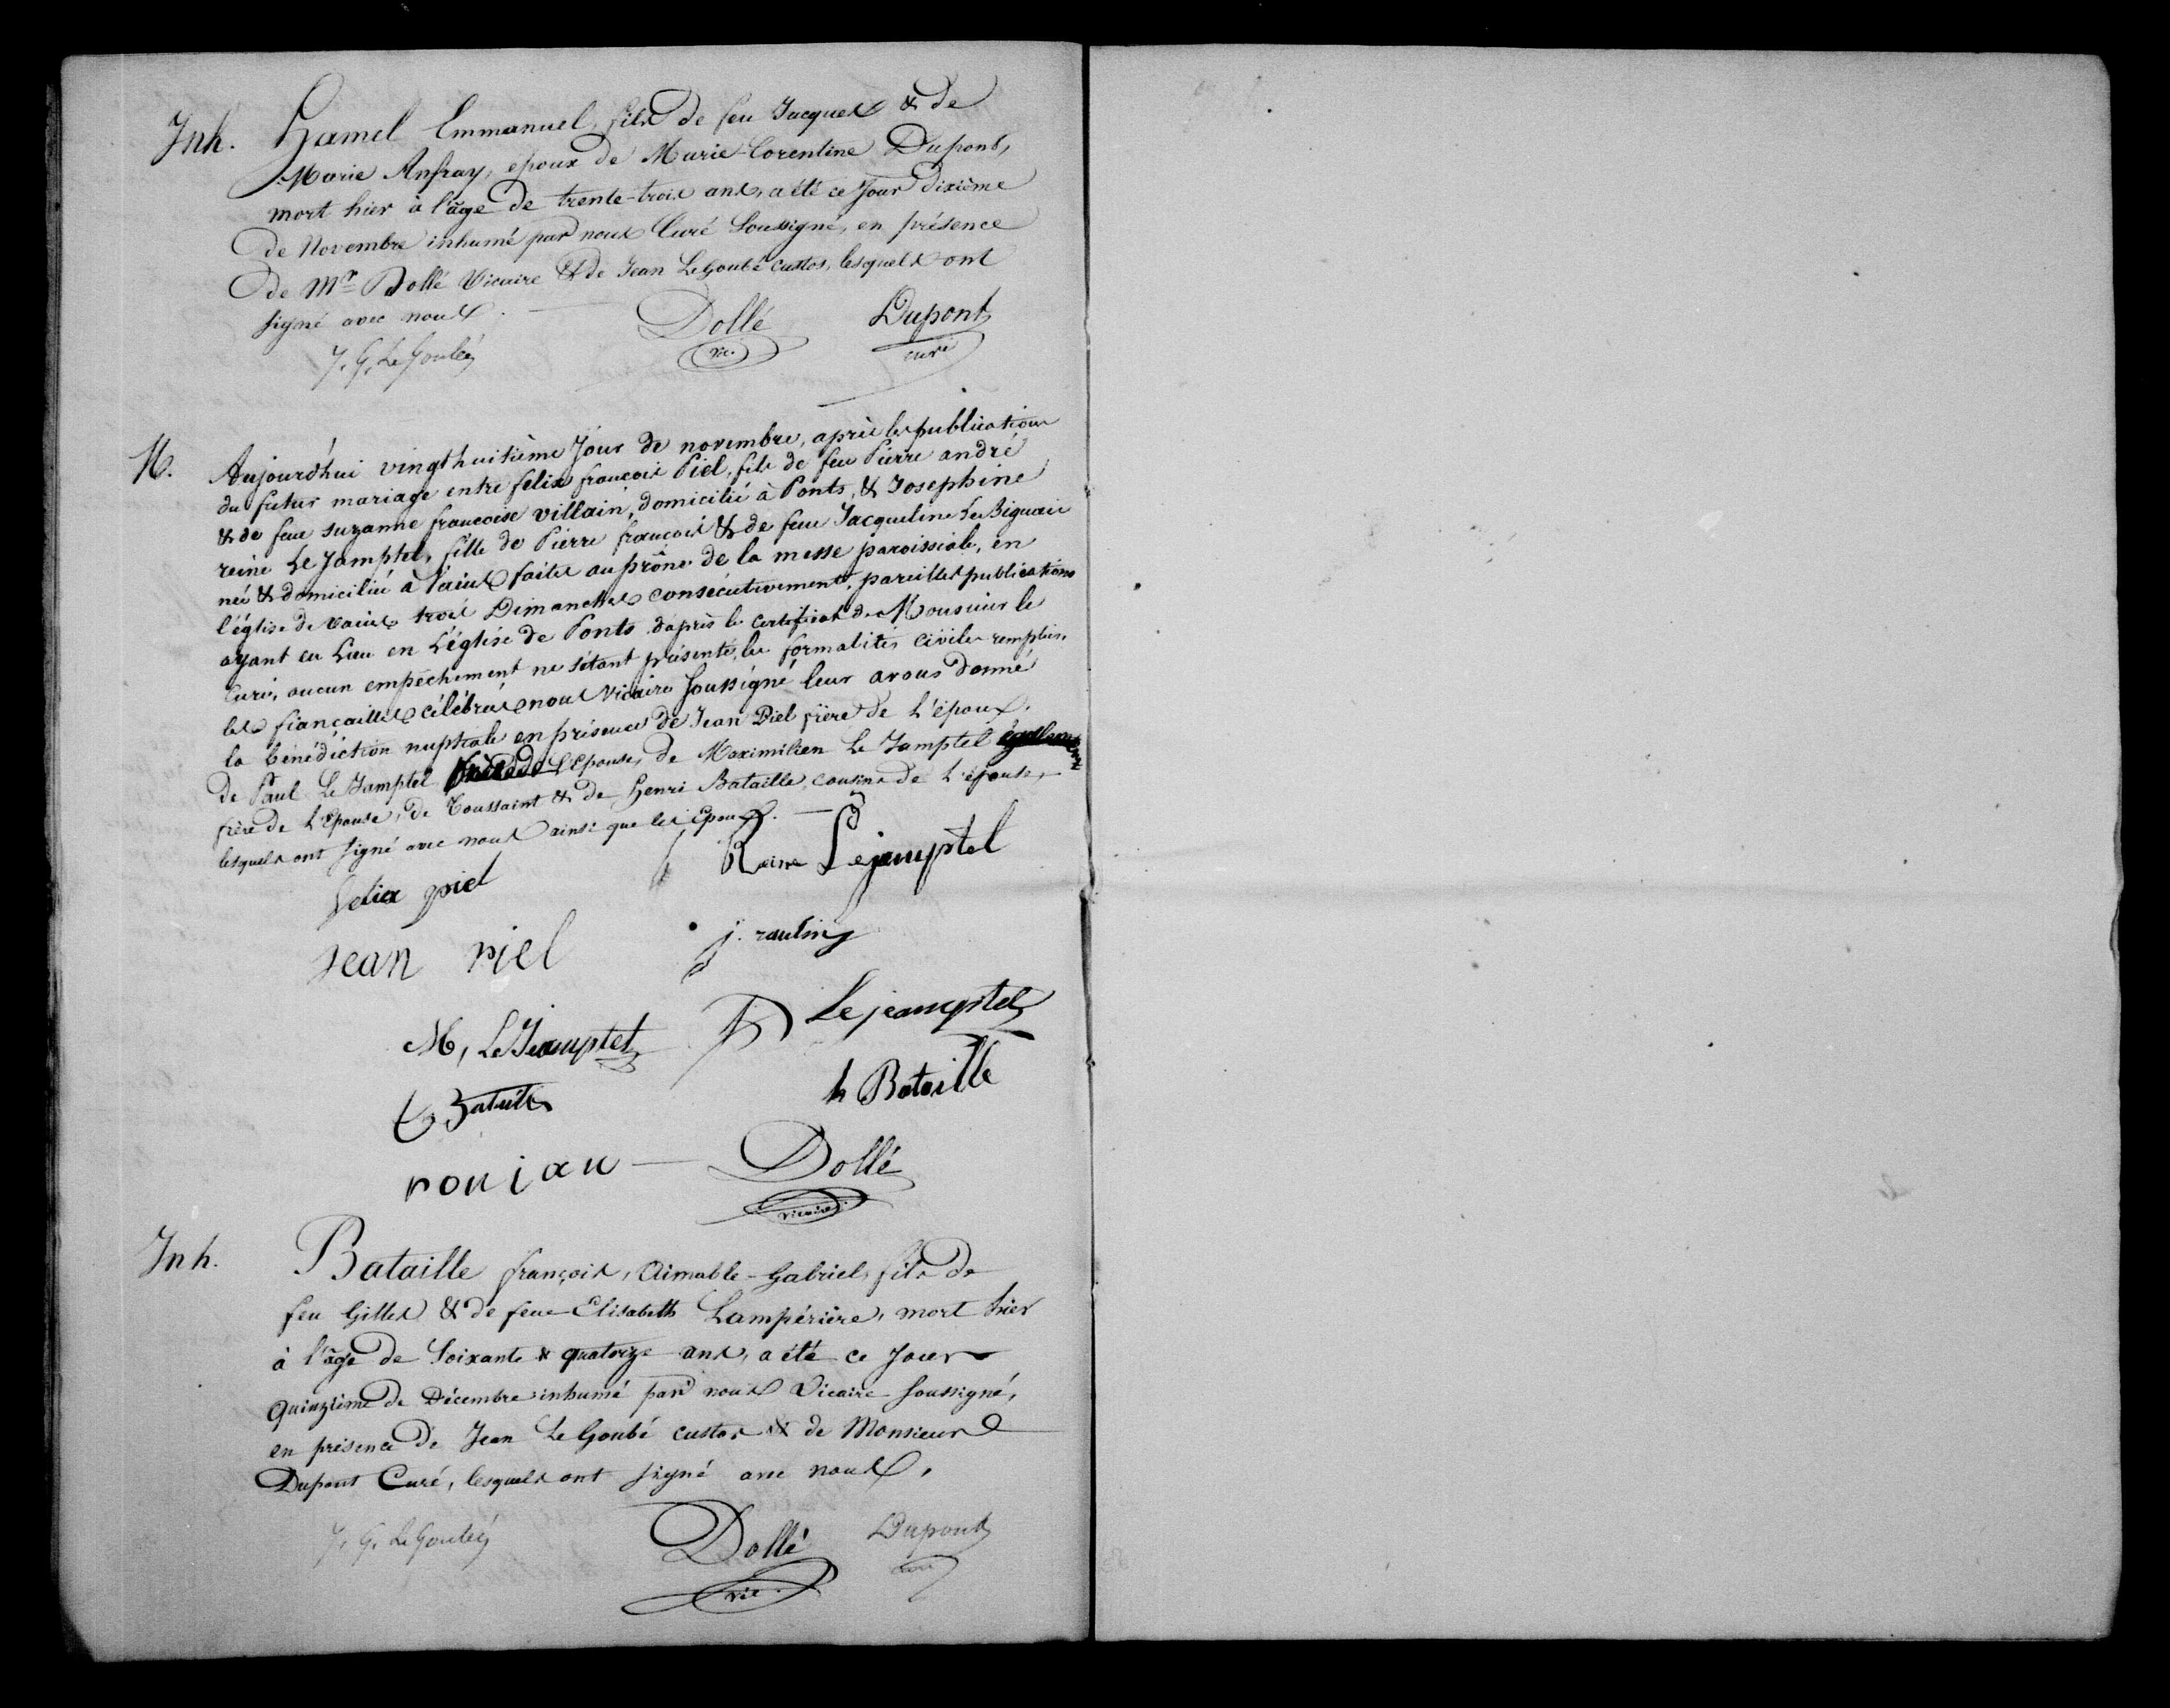 Inh. Hamel Emmanuel, fils de feu Jacques & de
Marie Anfray, époux de Marie-Corentine Dupont,
mort hier à l'âge de trente-trois ans, a été ce Jour dixième
de Novembre inhumé par nous Curé Soussigné, en présence
de Mr Dollé Vicaire & de Jean LeGoubé custos, lesquels ont
signé avec nous.
Dollé Dupont
J. G. LeGoubé vic. curé
M. Aujourd'hui vingthuitième Jour de novembre, après les publications
du futur mariage entre felix françois Piel, fils de feu Pierre andré
& de feue suzanne francoise villain, domicilié à Ponts, & Josephine
reine Le Jamptel, fille de Pierre françois & de feue Jacqueline Le Biguais
née & domiciliée à Vains faites au prône de la messe paroissiale, en
l'église de vains trois Dimanches consécutivement, pareilles publications
ayant eu Lieu en L'église de Ponts d'après le certificat de Monsieur le
Curé, aucun empêchement ne s'étant présenté, les formalités civiles remplies,
les fiançailles célébrées nous vicaire soussigné leur avons donné
la bénédiction nuptiale en présence de Jean Piel frère de L'époux,
de Paul Le Jamptel frère de L'Epouse, de Maximilien Le Jamptel également
frère de L'Epouse, de Toussaint & de Henri Bataille, cousins de L'épouse,
lesquels ont signé avec nous ainsi que les Epoux.
Reine Lejamptel
felix piel
jean piel j. raulin
M, LeJeamptel Lejeamptel
h Bataille
t Bataille
roujau Dollé
vicaire
Inh. Bataille françois, Aimable-Gabriel, fils de
feu Gilles & de feue Elisabeth Lampérière, mort hier
à l'âge de Soixante & quatorze ans, a été ce Jour
quinzième de Décembre inhumé par nous Vicaire soussigné,
en présence de Jean Le Goubé custos & de Monsieur
Dupont Curé, lesquels ont signé avec nous.
J. G. LeGoubé Dollé Dupont
vic. curé